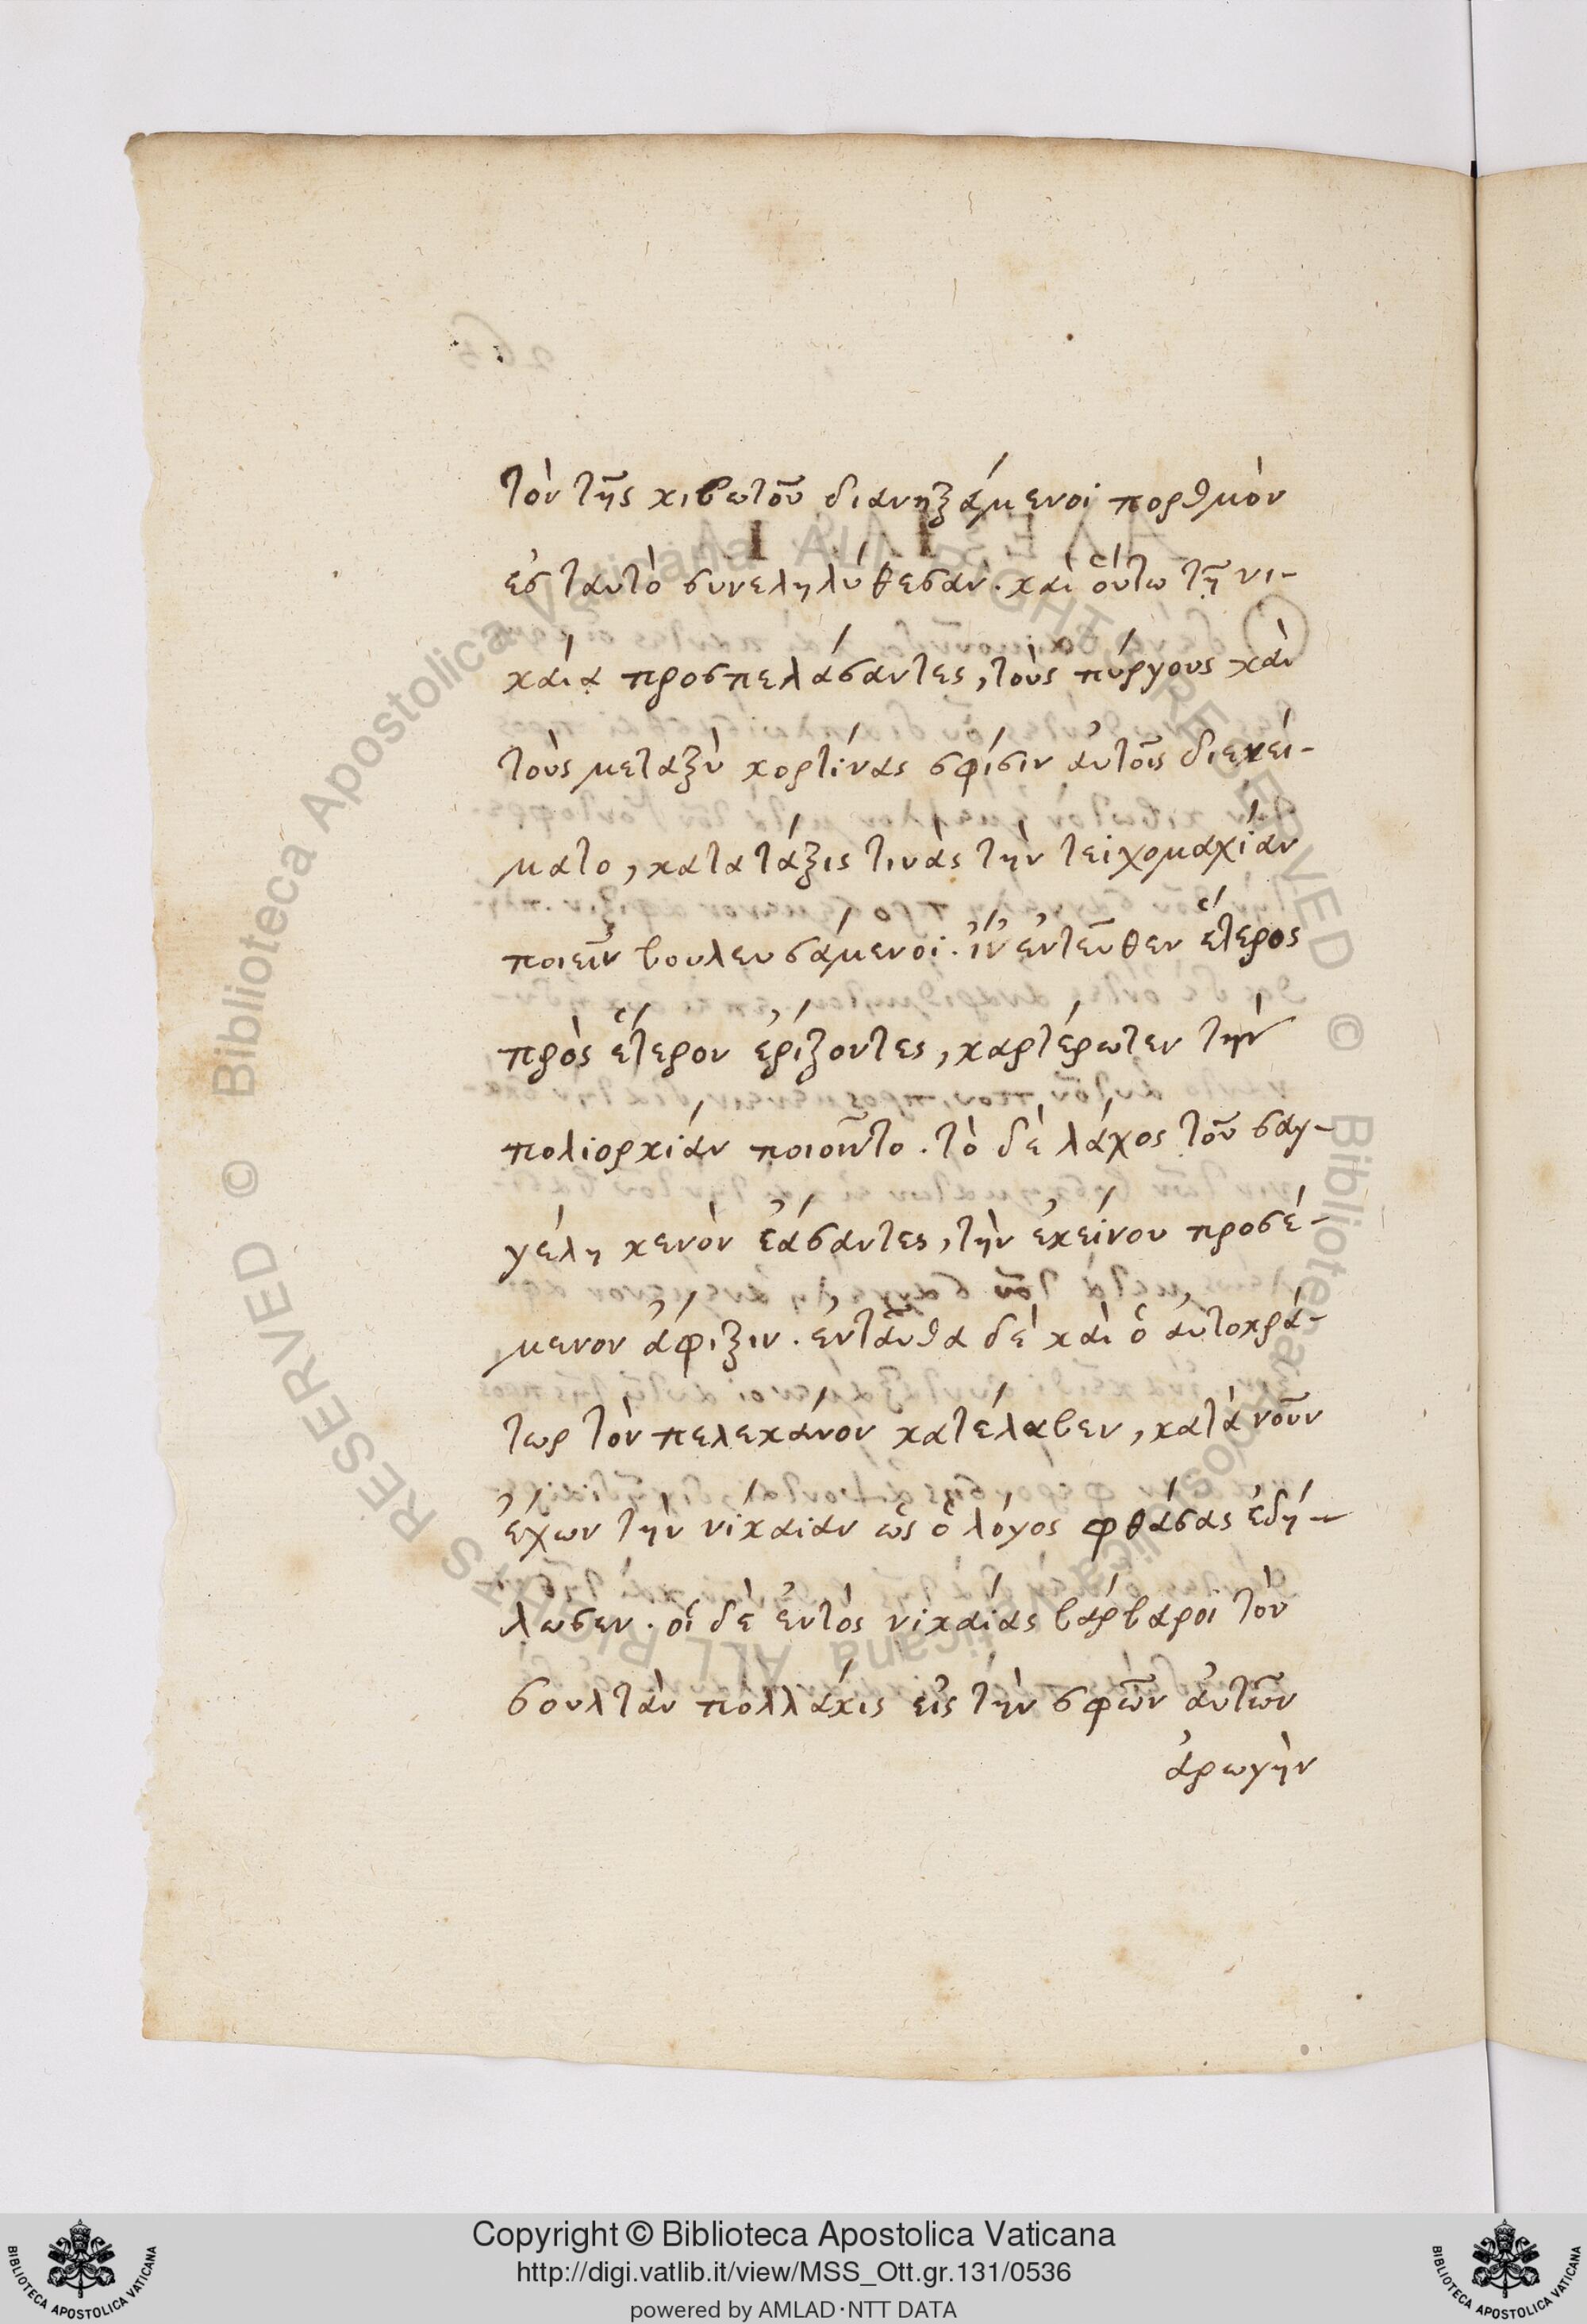 τὸν τῆς κιβωτοῦ διανηξάμενοι πορθμὸν
ἐς ταυτὸ συνεληλύθεσαν. καὶ οὕτω τῇ νι-
καίᾳ προσπελάσαντες, τοὺς πύργους καὶ
τοὺς μεταξὺ κορτίνας σφίσιν αὐτοῖς διεκεί-
ματο, κατα τάξις τινὰς τὴν τειχομαχίαν
ποιεῖν βουλευσάμενοι. ἵν ἐντεῦθεν ἕτερος
πρὸς ἕτερον ἐρίζοντες, καρτέρωτεν τὴν
πολιορκίαν ποιοῦντο. τὸ δὲ λάχος τοῦ σαγ-
γέλη κενὸν ἐάσαντες, τὴν ἐκείνου προσέ-
μενον ἄφιξιν. ἐνταῦθα δὲ καὶ ὁ αὐτοκρά-
τωρ τὸν πελεκάνον κατέλαβεν, κατὰ νοῦν
ἔχων τὴν νίκαιαν ὡς ὁ λόγος φθάσας ἐδή-
λωσεν. οἱ δὲ ἐντὸς νικαίας βάρβαροι τὸν
σουλτὰν πολλάκις εἰς τὴν σφῶν αὐτῶν
ἀρωγὴν
Copyright © Biblioteca Apostolica Vaticana
http://digi.vatlib.it/view/MSS_Ott.gr.131/0536
powered by AMLAD·NTT DATA